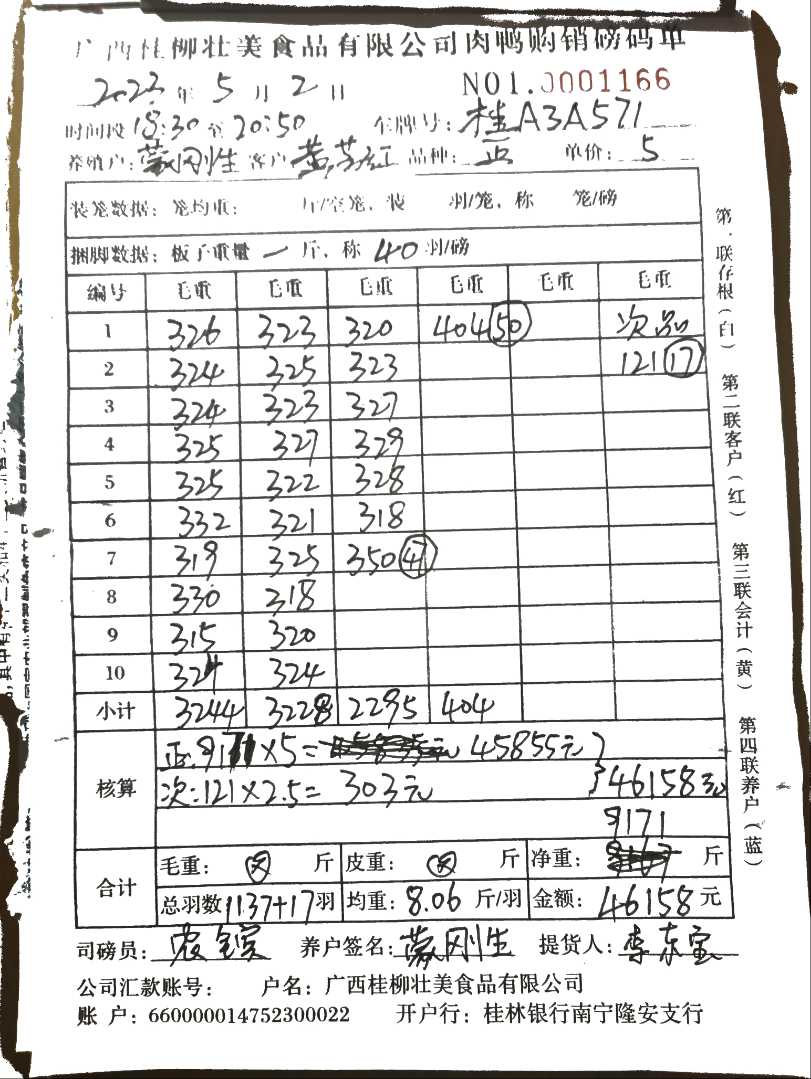 广西桂柳壮美食品有限公司肉鸭购销磅码单
2023年 5月 2日 NO1.0001166
时间段 18:30 至 20:50 车牌号: 桂A3A571
养殖户: 蒙刚生 客户 黄 红 品种: 正 单价: 5
装笼数据: 笼均重: 斤/空笼, 装 羽/笼, 称 笼/磅
捆脚数据: 板子重量 一 斤, 称 40 羽/磅
编号 毛重 毛重 毛重 毛重 毛重 毛重
1 326 323 320 404 50 次品
2 324 325 323 121 17
3 324 323 327
4 325 327 329
5 325 322 328
6 332 321 318
7 319 325 350 47
8 330 318
9 315 320
10 324 324
小计 3244 3228 2295 404
核算 正:9171×5= 45855元 } 46158元
次:121×2.5= 303元
9171
合计 毛重: 斤 皮重: 斤 净重: 斤
总羽数 1137+17 羽 均重: 8.06 斤/羽 金额: 46158 元
司磅员: 养户签名: 蒙刚生 提货人: 李东宝
公司汇款账号: 户名: 广西桂柳壮美食品有限公司
账 户: 660000014752300022 开户行: 桂林银行南宁隆安支行
第一联存根(白) 第二联客户(红) 第三联会计(黄) 第四联养户(蓝)